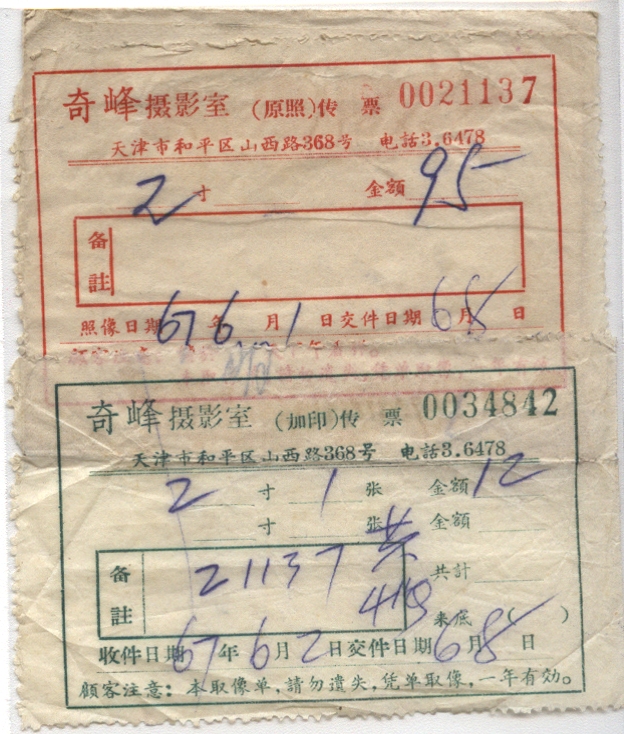 奇峰摄影室 (原照)传 票 0021137
天津市和平区山西路368号 电話3.6478
2 寸 金額 95
备註
照像日期 67 年 6 月 1 日交件日期 6 月 8 日
奇峰摄影室 (加印)传 票 0034842
天津市和平区山西路368号 电話3.6478
2 寸 1 张 金額 12
寸 张 金額
备註 21137 共計
来底 ( )
收件日期 67 年 6 月 2 日交件日期 6 月 8 日
顧客注意：本取像单,請勿遗失,凭单取像,一年有効。